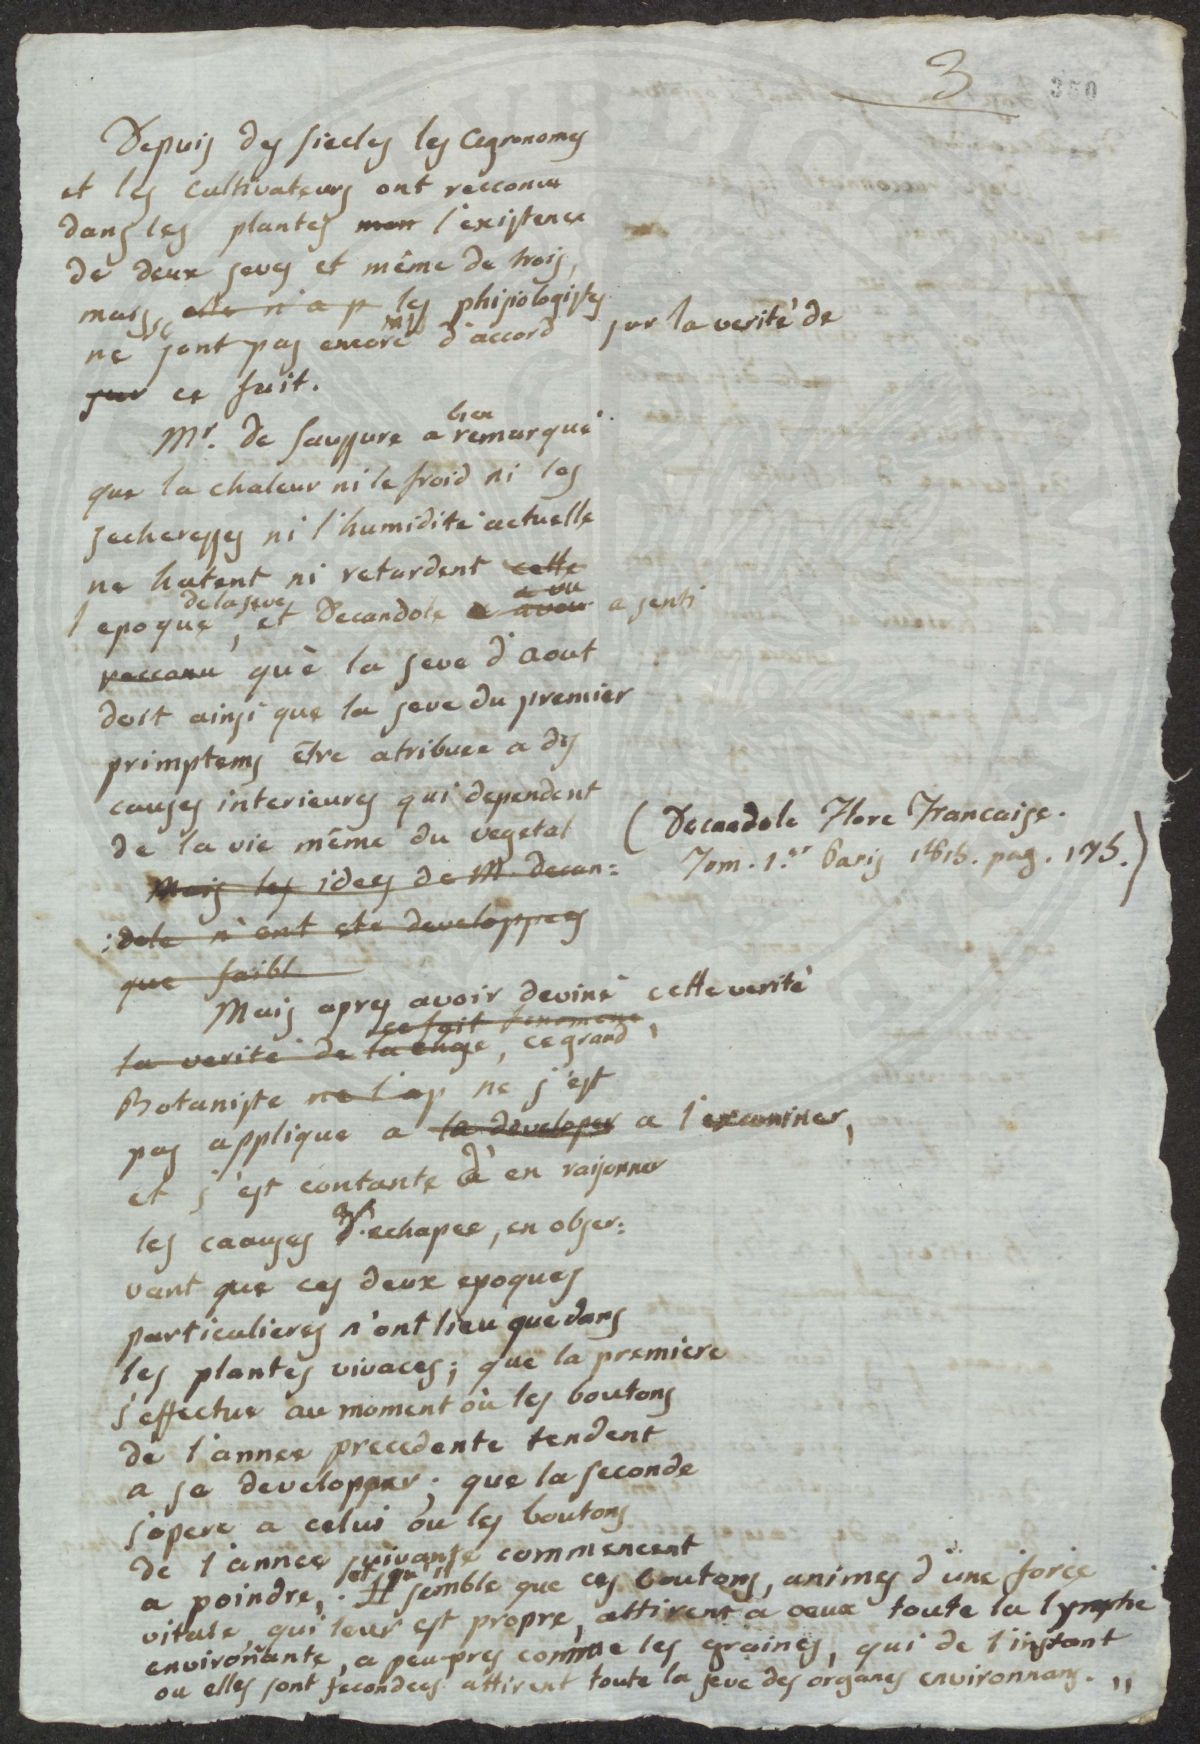 3
350
Depuis des siecles les Agronomes
et les cultivateurs ont recconu
dans les plantes l'existence
de deux seves et même de trois,
mais elle n'a p les phisiologistes
ne sont pas encore d'accord sur la verité de
sur ce fait.
Mr. de Saussure a bien remarqué
que la chaleur ni le froid ni les
secheresses ni l'humidité actuelle
ne hatent ni retardent cette
l'epoque de la seve, et Decandole a vu a senti
reccanu què la seve d'Aout
doit ainsi que la seve du premier
primptems être atribuee a des
causes interieures qui dependent
de la vie même du vegetal
(Decandole Flore Francaise.
Tom. 1.er Paris 1815. pag. 175.)
Mais les idees de M. decan=
:dole n'ont ete developpees
que faibl
Mais apres avoir deviné cette verité
ce fait fenomene
la verité de la chose, ce grand
Botaniste ne l'ap ne s'est
pas applique a la developer a l'examiner,
et s'est contante d'en raisonner
les caauses d'echapee, en obser=
vant que ces deux epoques
particulieres n'ont lieu que dans
les plantes vivaces; que la premiere
s'effectue au moment où les boutons
de l'annee precedente tendent
a se developper; que la seconde
s'opere a celui ou les boutons
de l'annee suivante commencent
a poindre, et qu'il Il semble que ces boutons, animes d'une force
vitale, qui leur est propre, attirent a oeux toute la lymphe
environnante, a peu pres comme les graines, qui de l'instant
ou elles sont fecondees attirent toute la seve des organes environnans. "